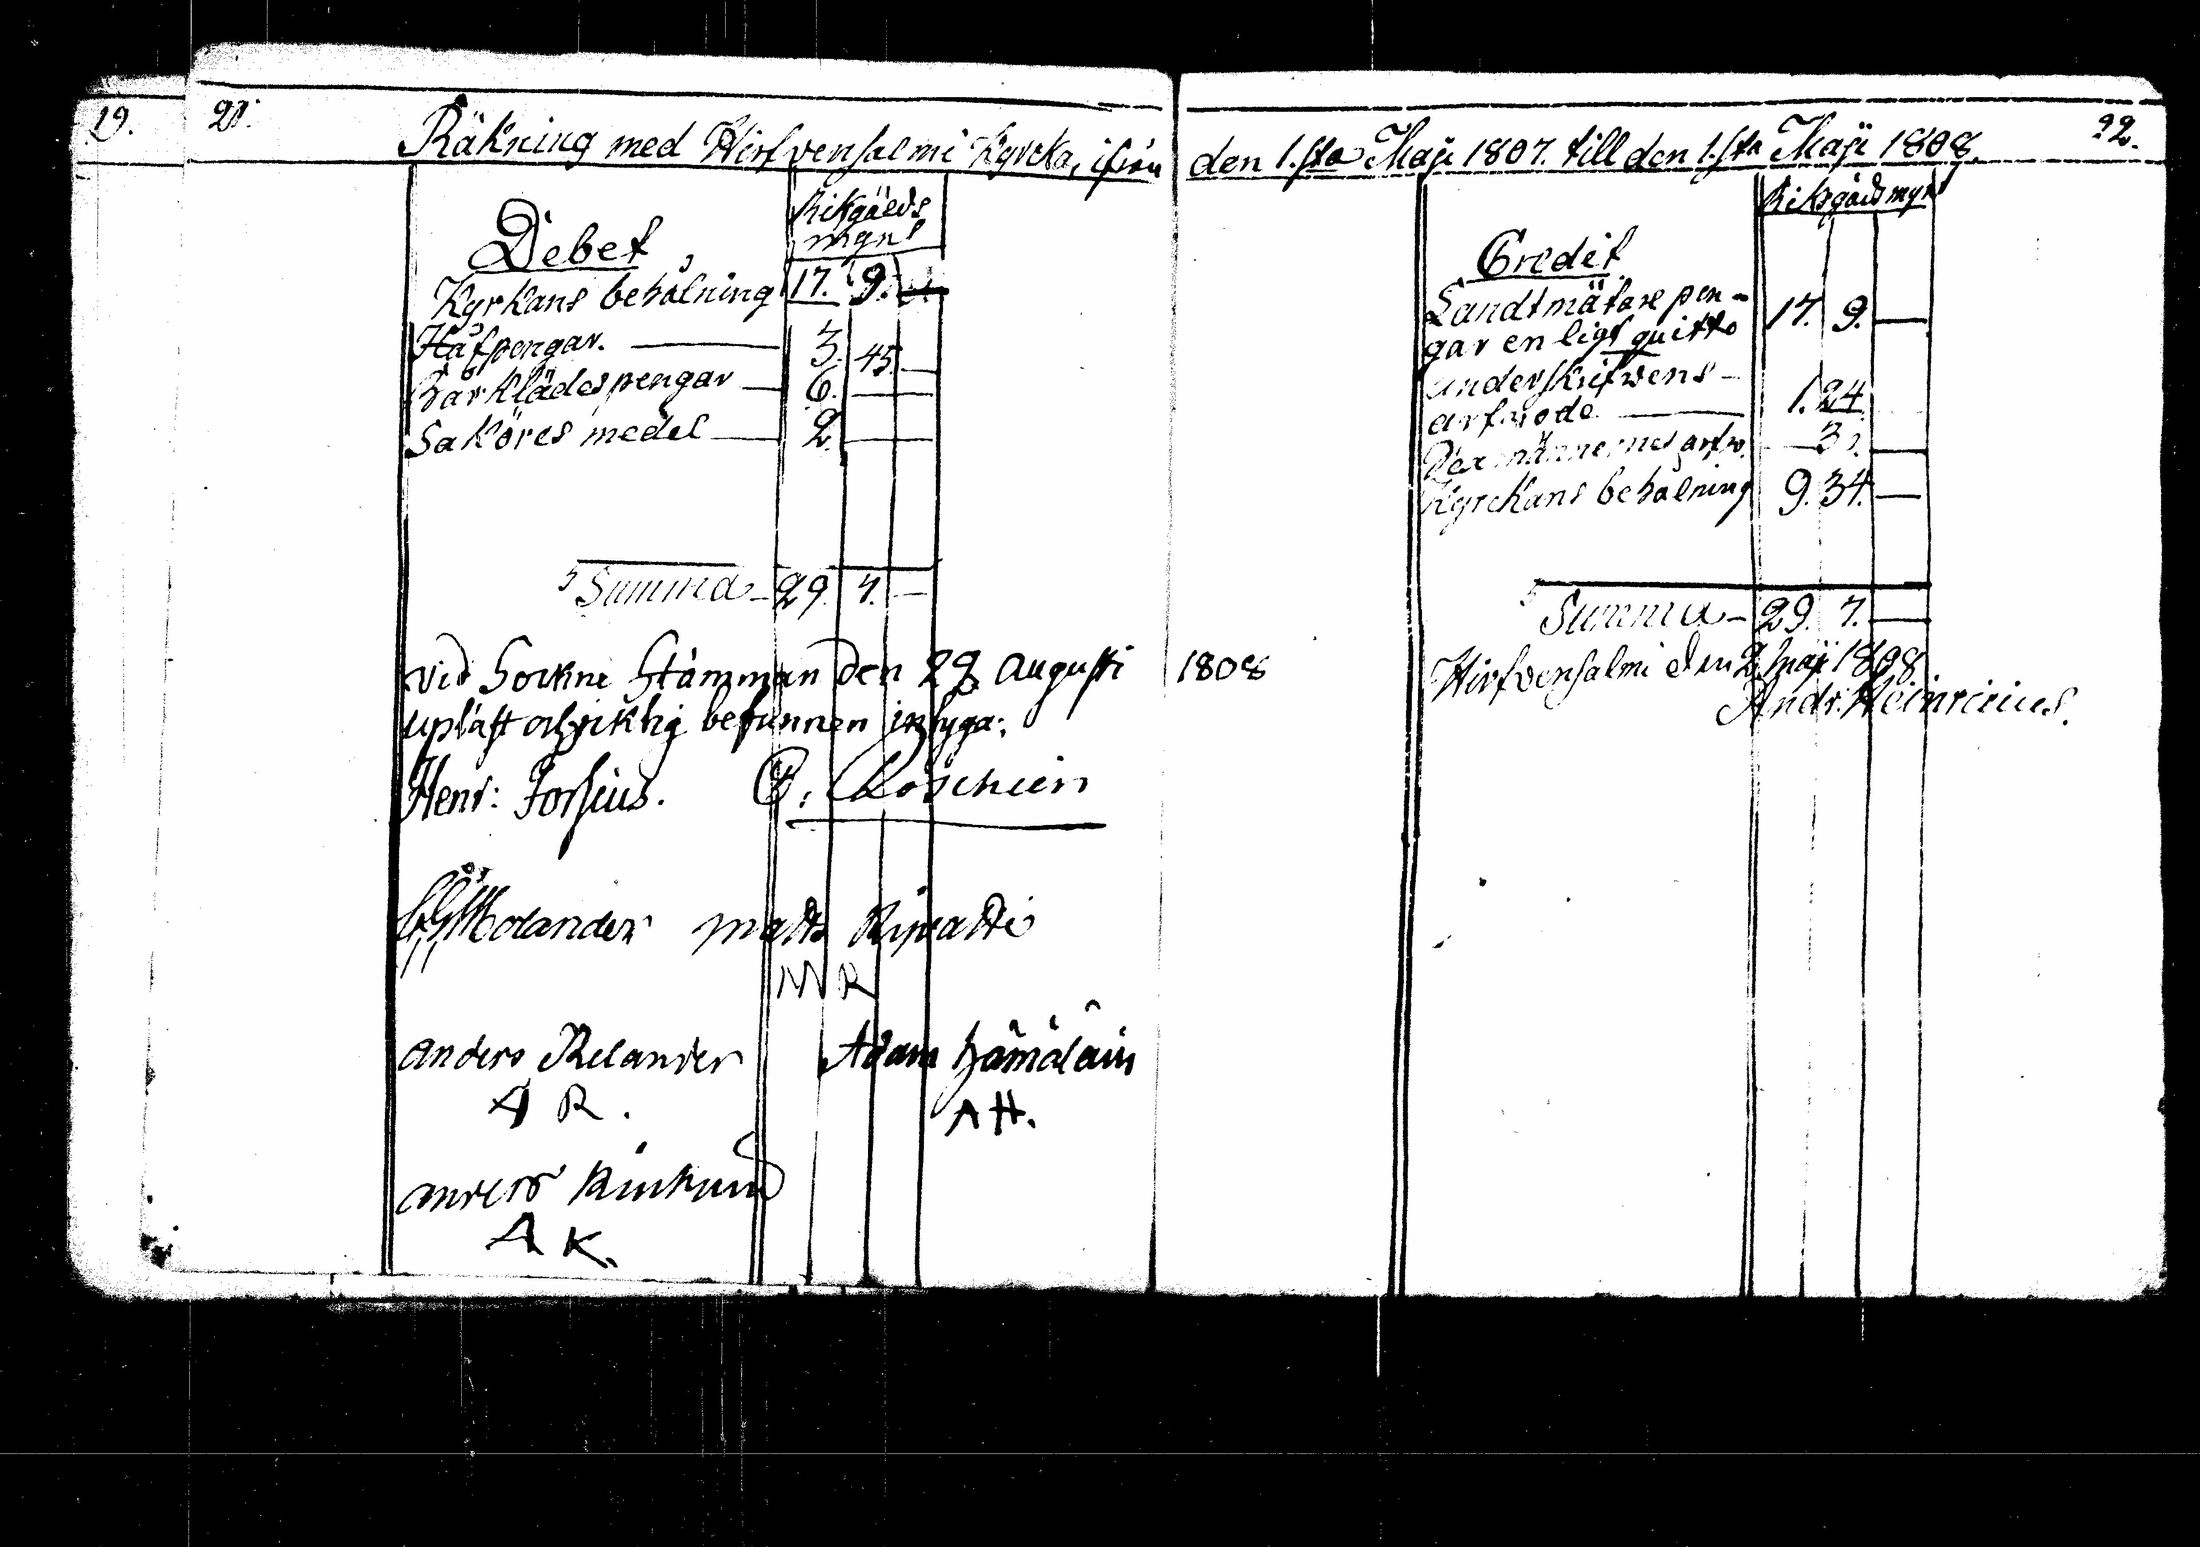 19.
21.
Räkning med Hirfvensalmi Kyrcka, ifrån den 1.sta Maji 1807. till den 1.sta Maji 1808.
22.
Rikgälds
mynt
Debet
Kyrkans behålning 17. 9.
Håfpengar. — 3. 45. —
Bårklädespengar — 6. — —
Saköres medel — 2. — —
Summa — 29. 7. —
Vid Sockne Stämman den 28 Augusti 1808
upläst och riktig befunnen intyga:
Henr: Forsius.
Molander Matts Ripatti
M R
Anders Relander Adam Hämäläin
A R. A H.
Anders
A K.
Riksgälds mynt
Credit
Landtmätare pen-
gar enligt quitto 17. 9. —
Underskrifvens
arfvode — 1. 24.
Sexmännernes arfv. — 3
Kyrckans behålning 9. 34. —
Summa — 29. 7. —
Hirfvensalmi den 2 Maji 1808
Andr. Heinricius.